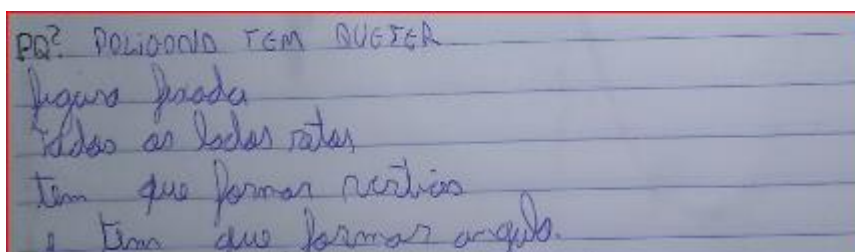 PQ? POLIGONO TEM QUE TER
figura fixada
todos os lados retos
tem que formar vertices
e tem que formar angulo.